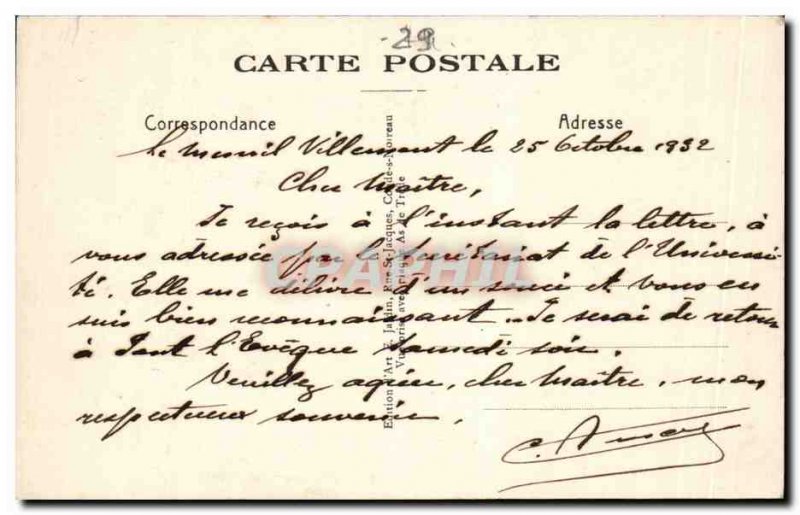 29
CARTE POSTALE
Correspondance
Adresse
le Mesnil Villement le 25 Octobre 1932
Cher Maître,
Je reçois à l'instant la lettre, à
vous adressée par le Secrétariat de l'Universi-
té. Elle me délivre d'un souci et vous en
suis bien reconnaissant. Je serai de retour
à Pont l'Evêque Samedi soir.
Veuillez agréer, cher Maître, mon
respectueux souvenir.
C.
Edition d'Art E. Jardin, Rue St-Jacques, Condé-s-Noireau
Vues prises avec Plaque As de Trèfle
CPAPHIL